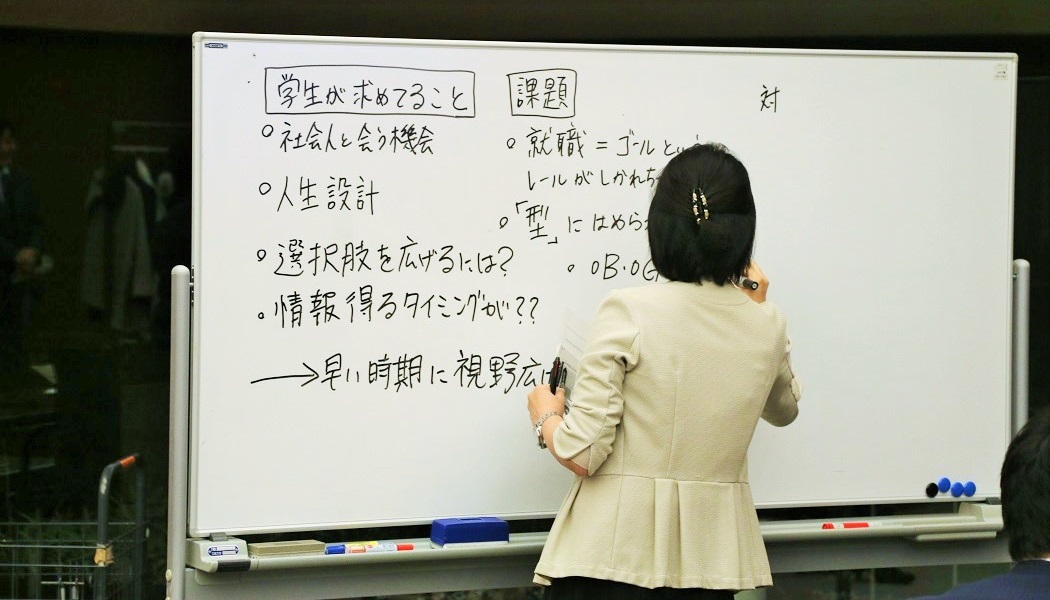 学生が求めてること
○社会人と会う機会
○人生設計
○選択肢を広げるには?
○情報得るタイミングが??
→早い時期に視野広
課題
○就職=ゴールとい
レールがしかれち
○「型」にはめら
○OB・OG
対